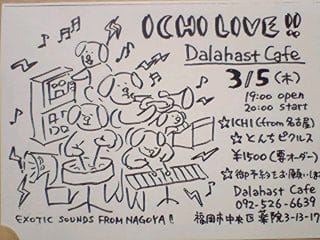 ICHI LIVE!!
Dalahast Cafe
3/5(木)
19:00 open
20:00 start
☆ICHI(from名古屋)
☆とんちピクルス
¥1500(要オーダー)
☆御予約をお願いしま
Dalahast Cafe
092-526-6639
福岡市中央区薬院3-13-17
EXOTIC SOUNDS FROM NAGOYA!!